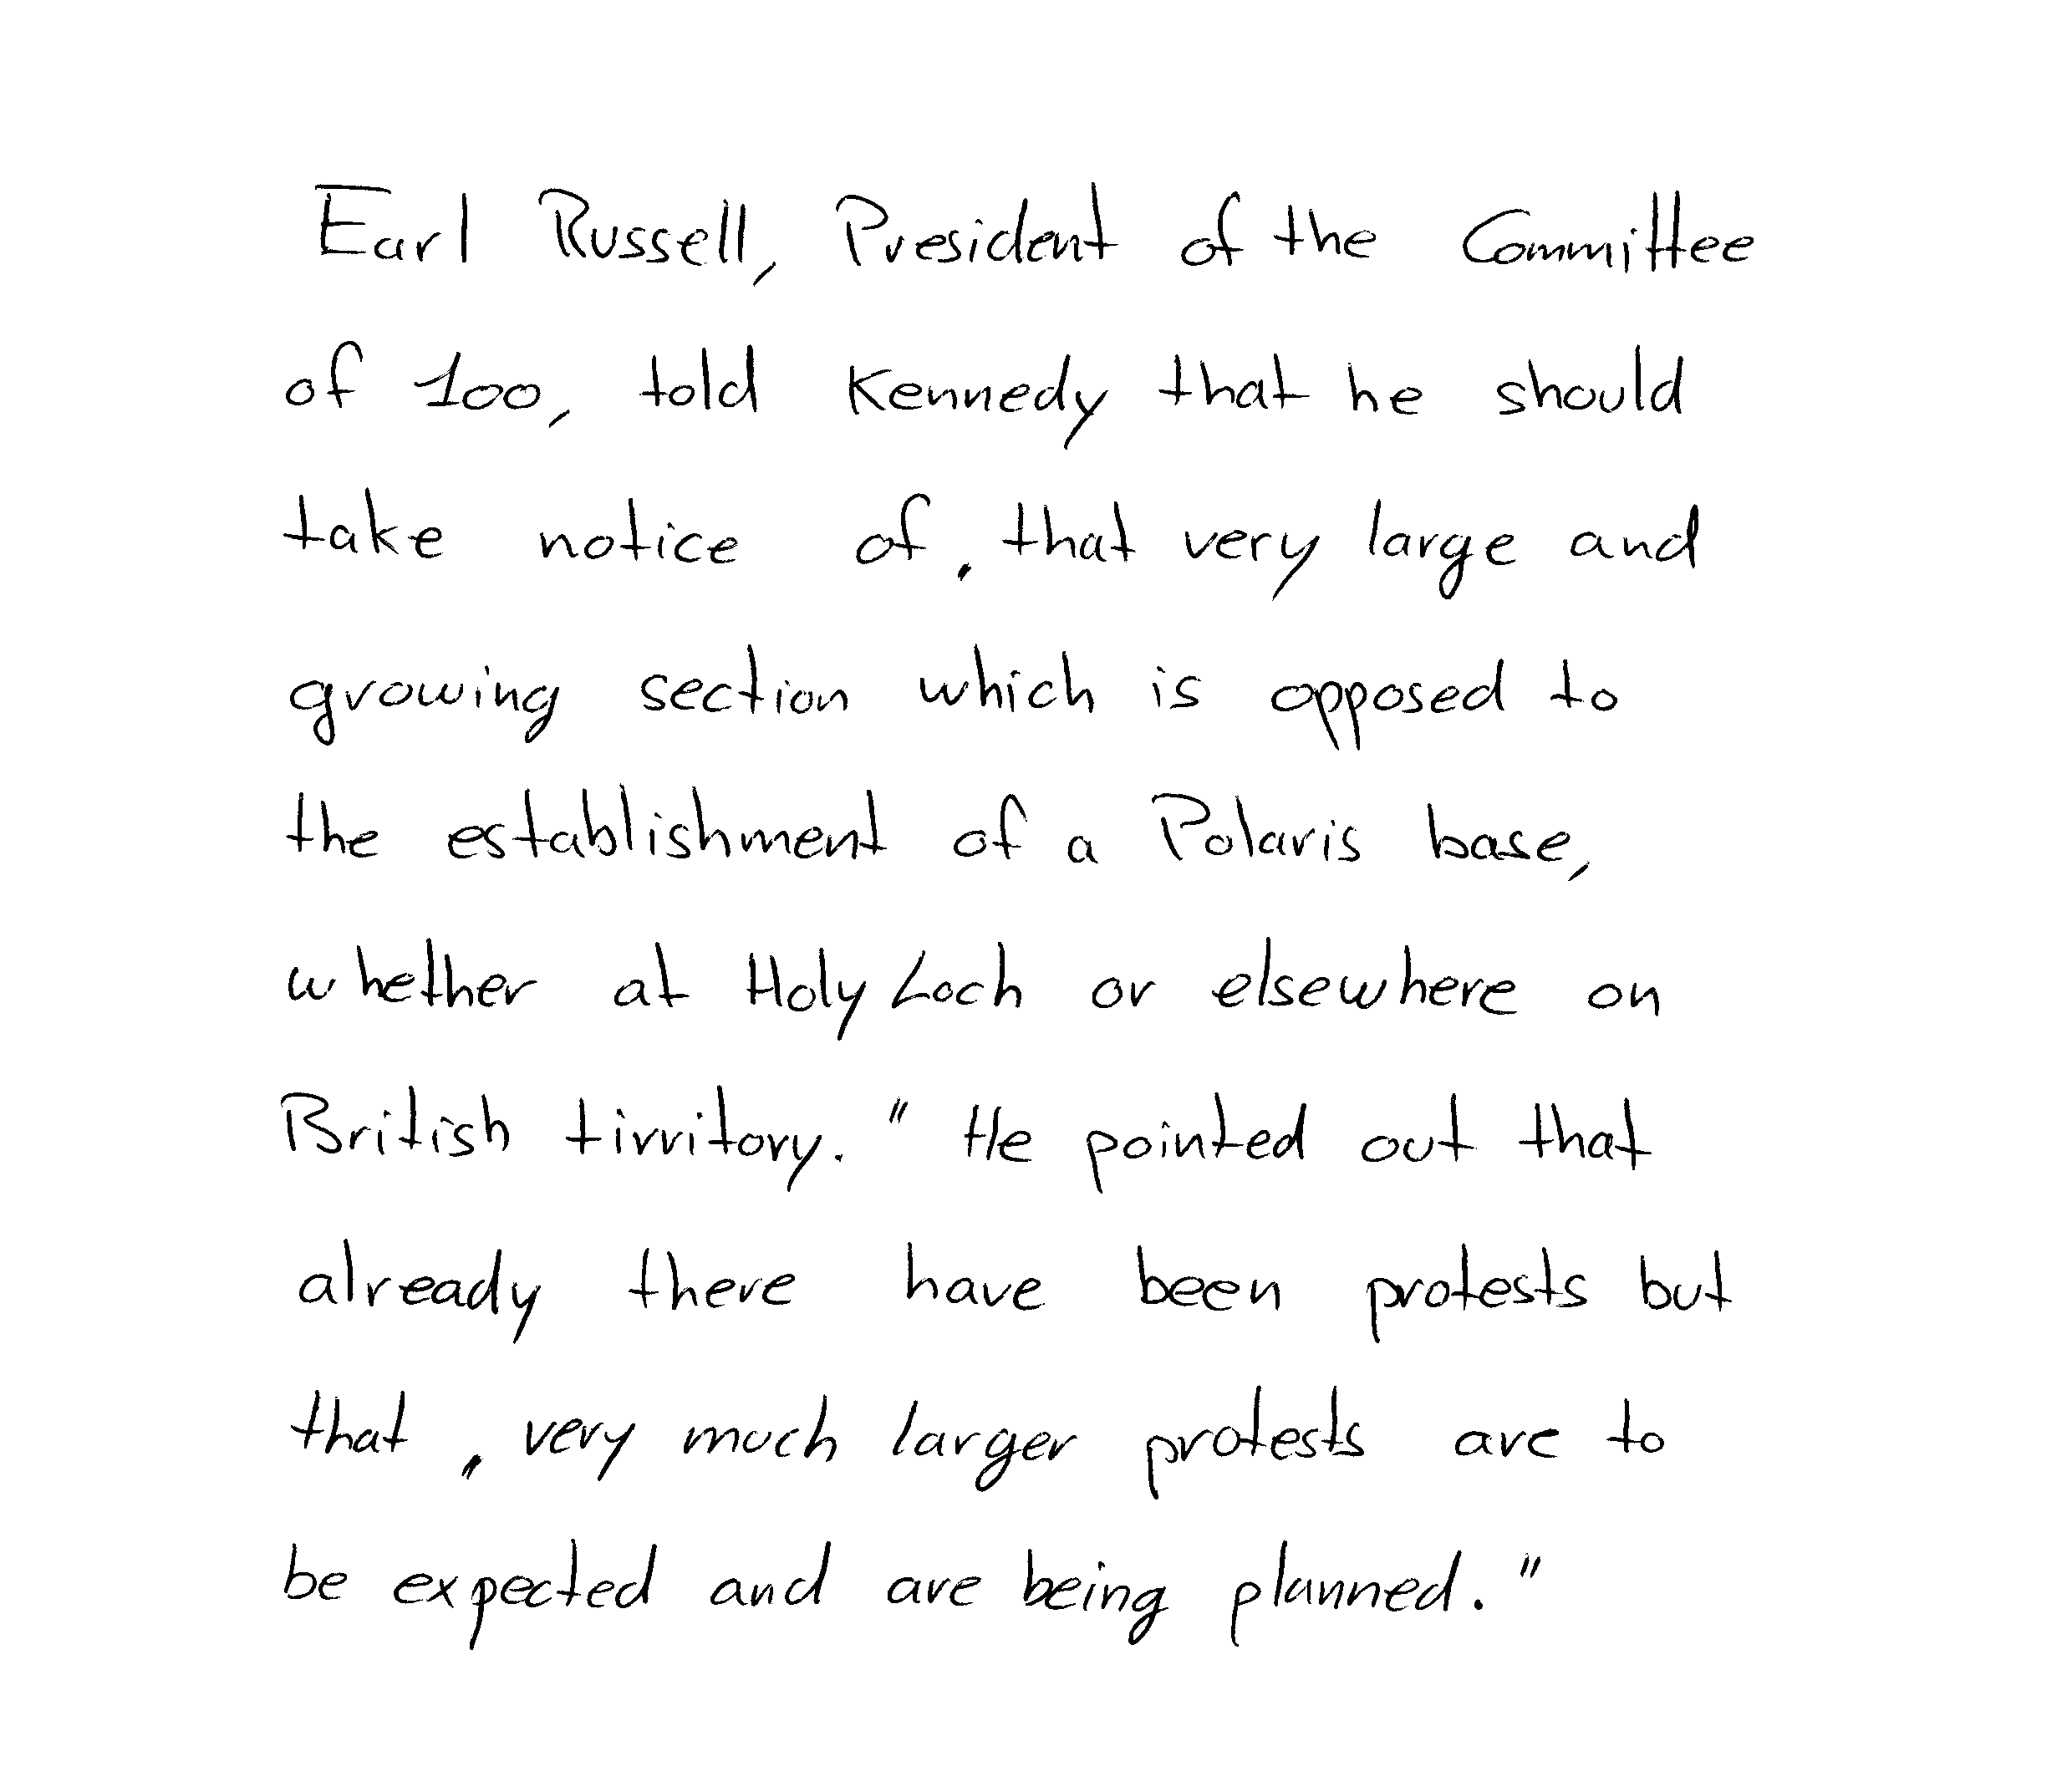 Earl Russell, President of the Committee
of 100, told Kennedy that he should
take notice of , that very large and
growing section which is opposed to
the establishment of a Polaris base,
whether at Holy Loch or elsewhere on
British tirritory. " He pointed out that
already there have been protests but
that , very much larger protests are to
be expected and are being planned. "